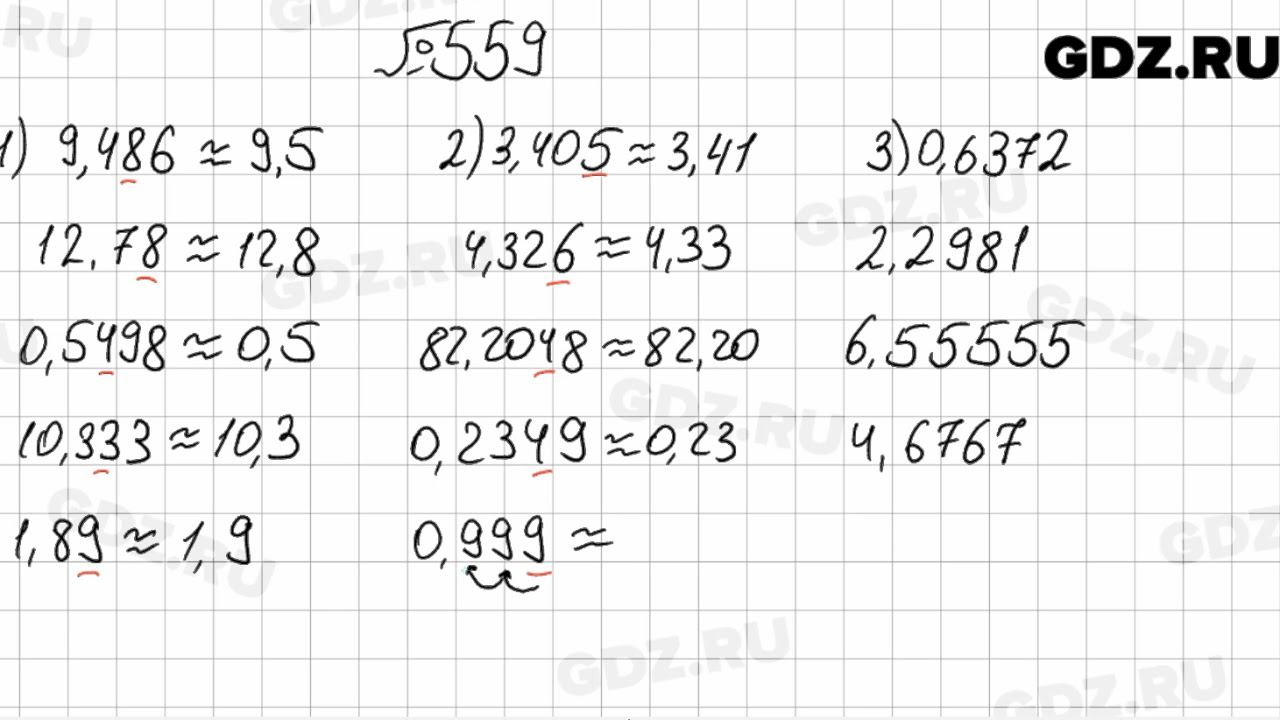 №559
GDZ.RU
1) 9,486 ≈ 9,5
12,78 ≈ 12,8
0,5498 ≈ 0,5
10,333 ≈ 10,3
1,89 ≈ 1,9
2) 3,405 ≈ 3,41
4,326 ≈ 4,33
82,2048 ≈ 82,20
0,2349 ≈ 0,23
0,999 ≈
3) 0,6372
2,2981
6,55555
4,6767